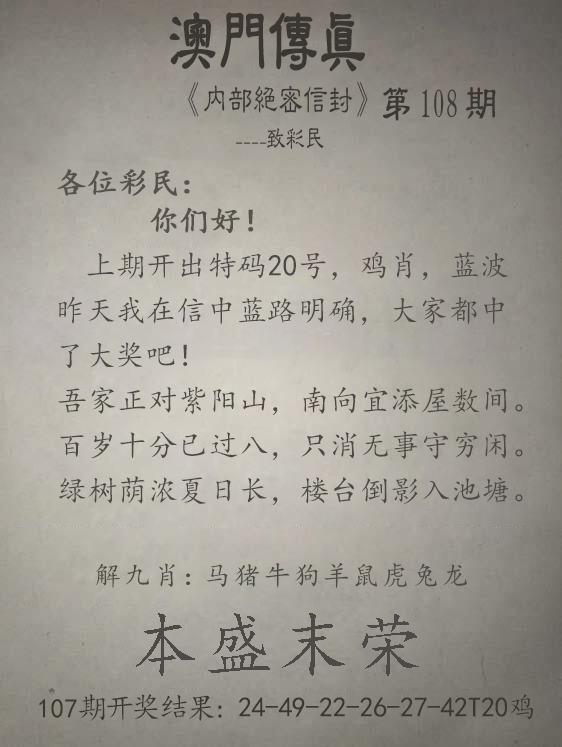 澳門傳眞
《内部絕密信封》第108期
----致彩民
各位彩民：
你们好！
上期开出特码20号，鸡肖，蓝波
昨天我在信中蓝路明确，大家都中
了大奖吧！
吾家正对紫阳山，南向宜添屋数间。
百岁十分已过八，只消无事守穷闲。
绿树荫浓夏日长，楼台倒影入池塘。
解九肖：马猪牛狗羊鼠虎兔龙
本盛末荣
107期开奖结果：24-49-22-26-27-42T20鸡